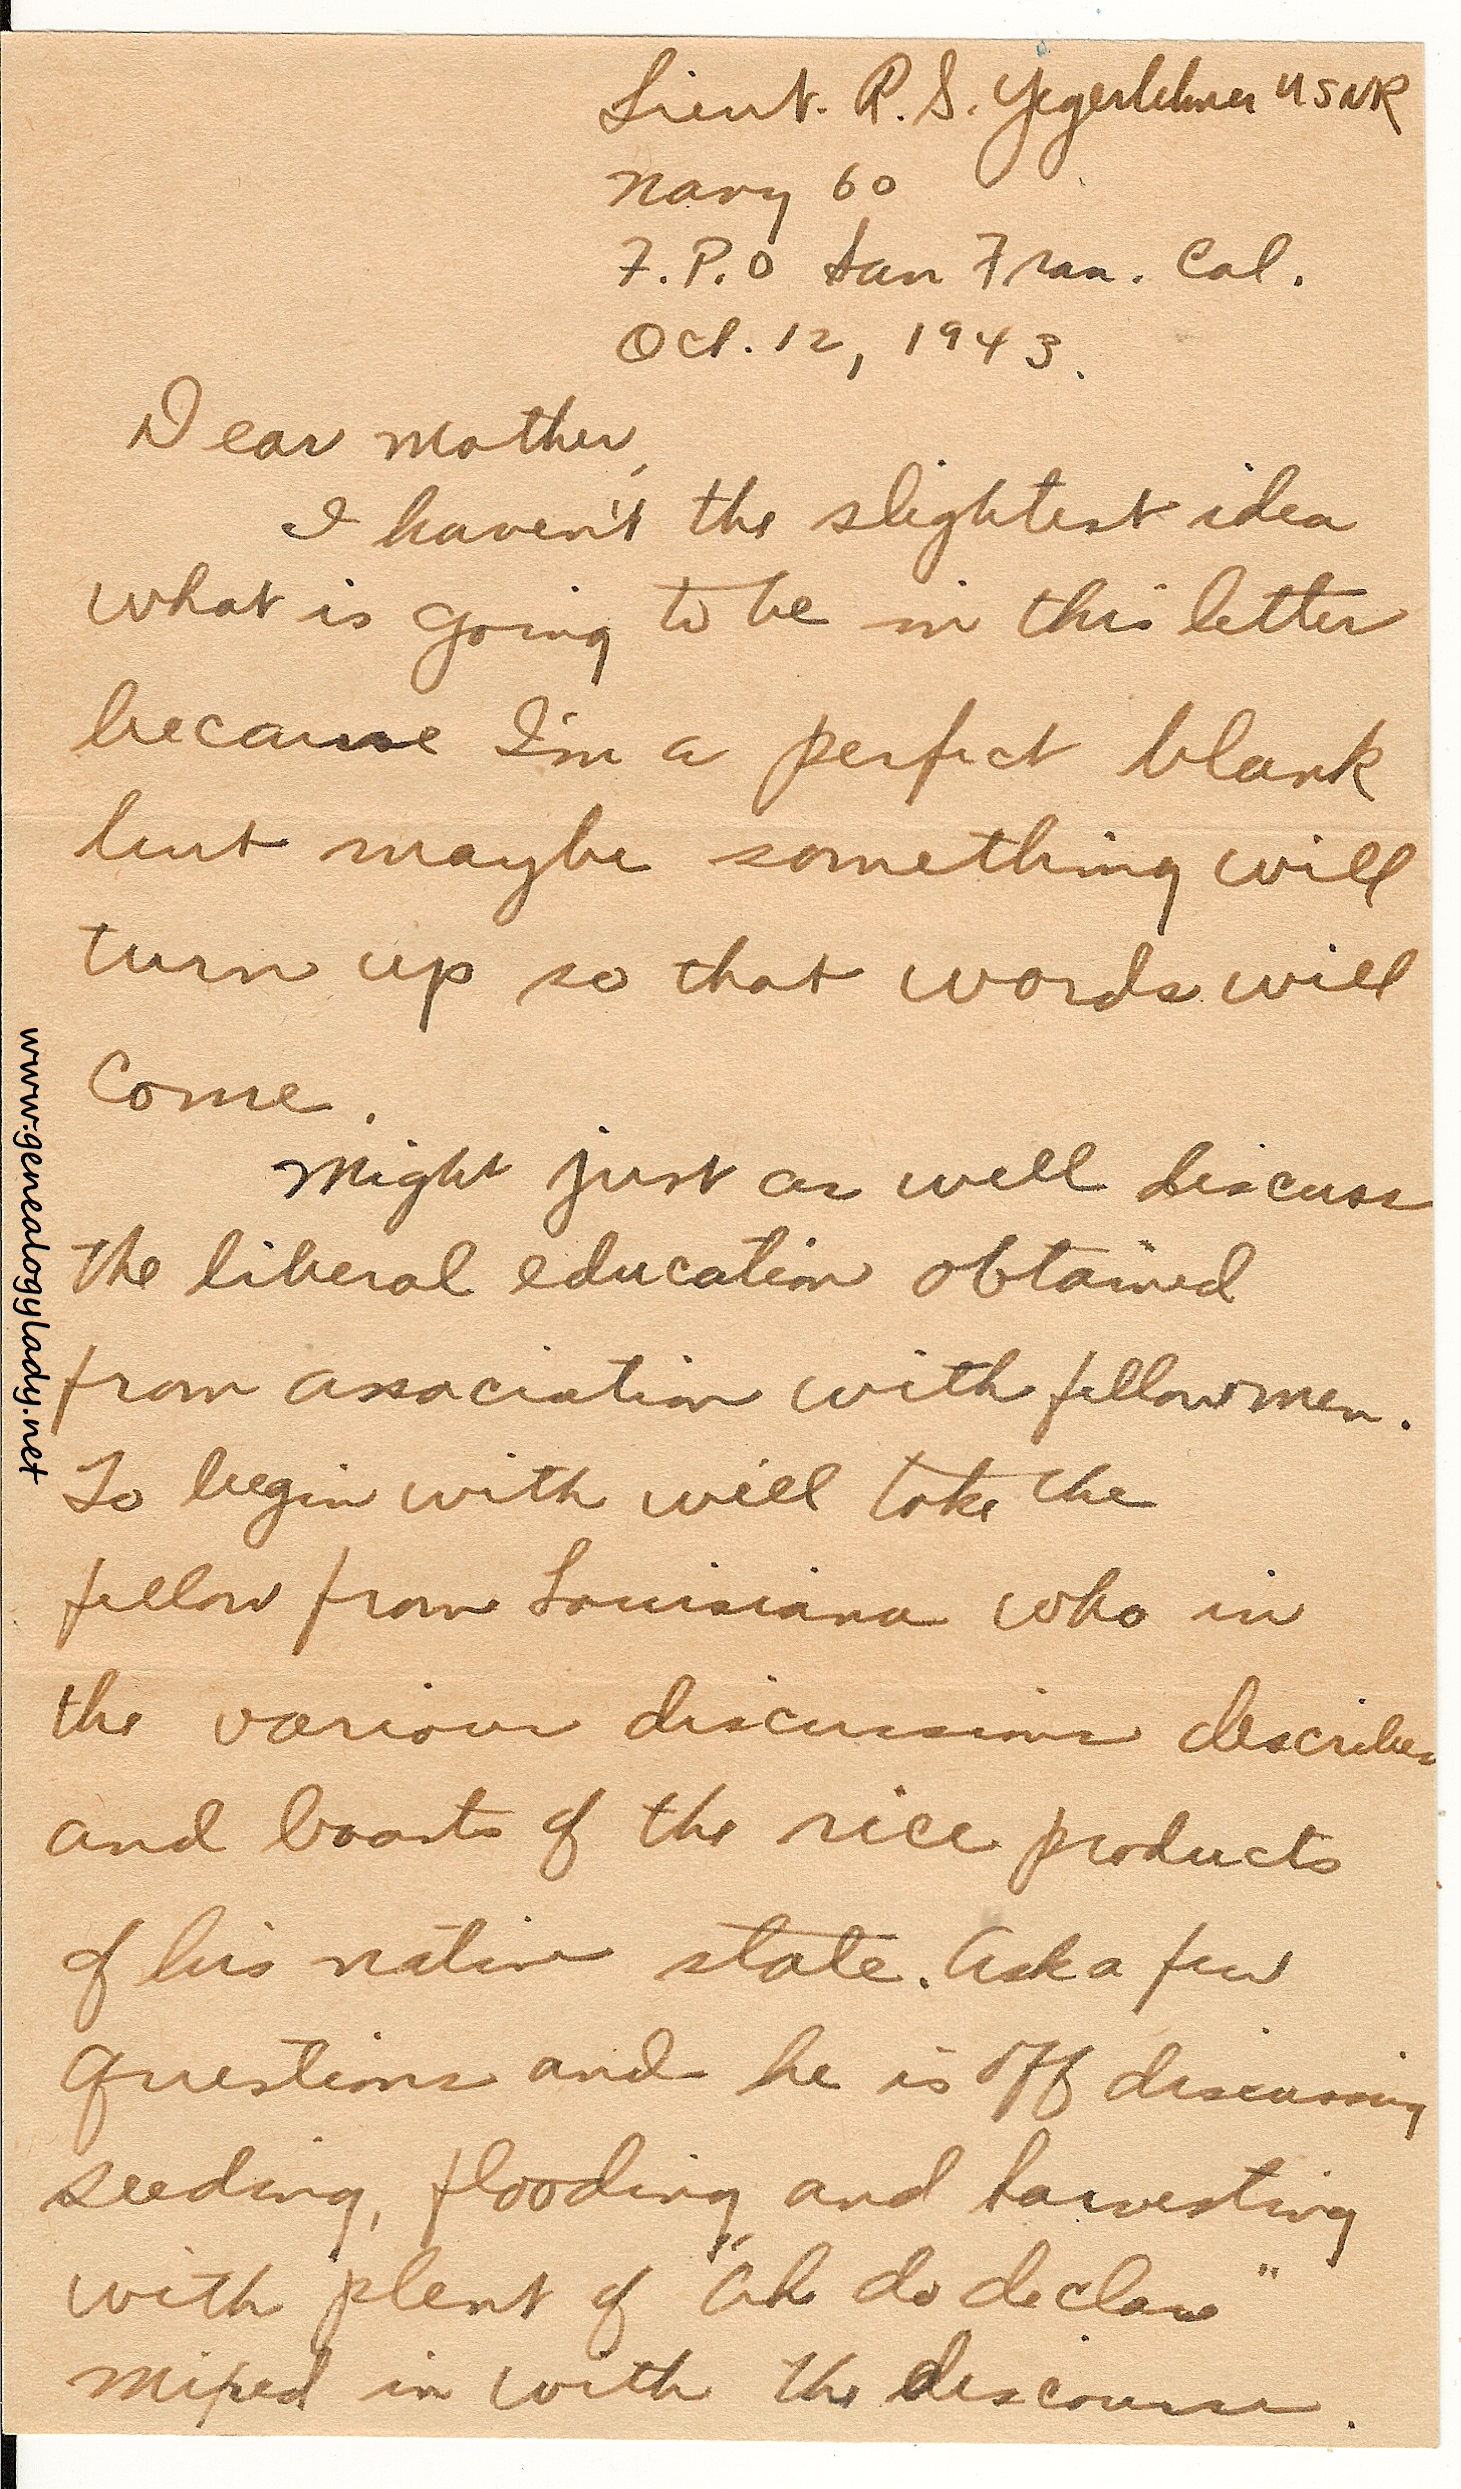 Lieut. R. S. Yegerlehner USNR
Navy 60
F.P.O San Fran. Cal.
Oct. 12, 1943.
Dear Mother,
I haven't the slightest idea
what is going to be in this letter
because I'm a perfect blank
but maybe something will
turn up so that words will
come.
Might just as well discuss
the liberal education obtained
from association with fellowmen.
To begin with will take the
fellow from Louisiana who in
the various discussions describes
and boasts of the rice products
of his native state. Ask a few
questions and he is off discussing
seeding, flooding and harvesting
with plent of "Ah do declare"
mixed in with the discourse.
www.genealogylady.net